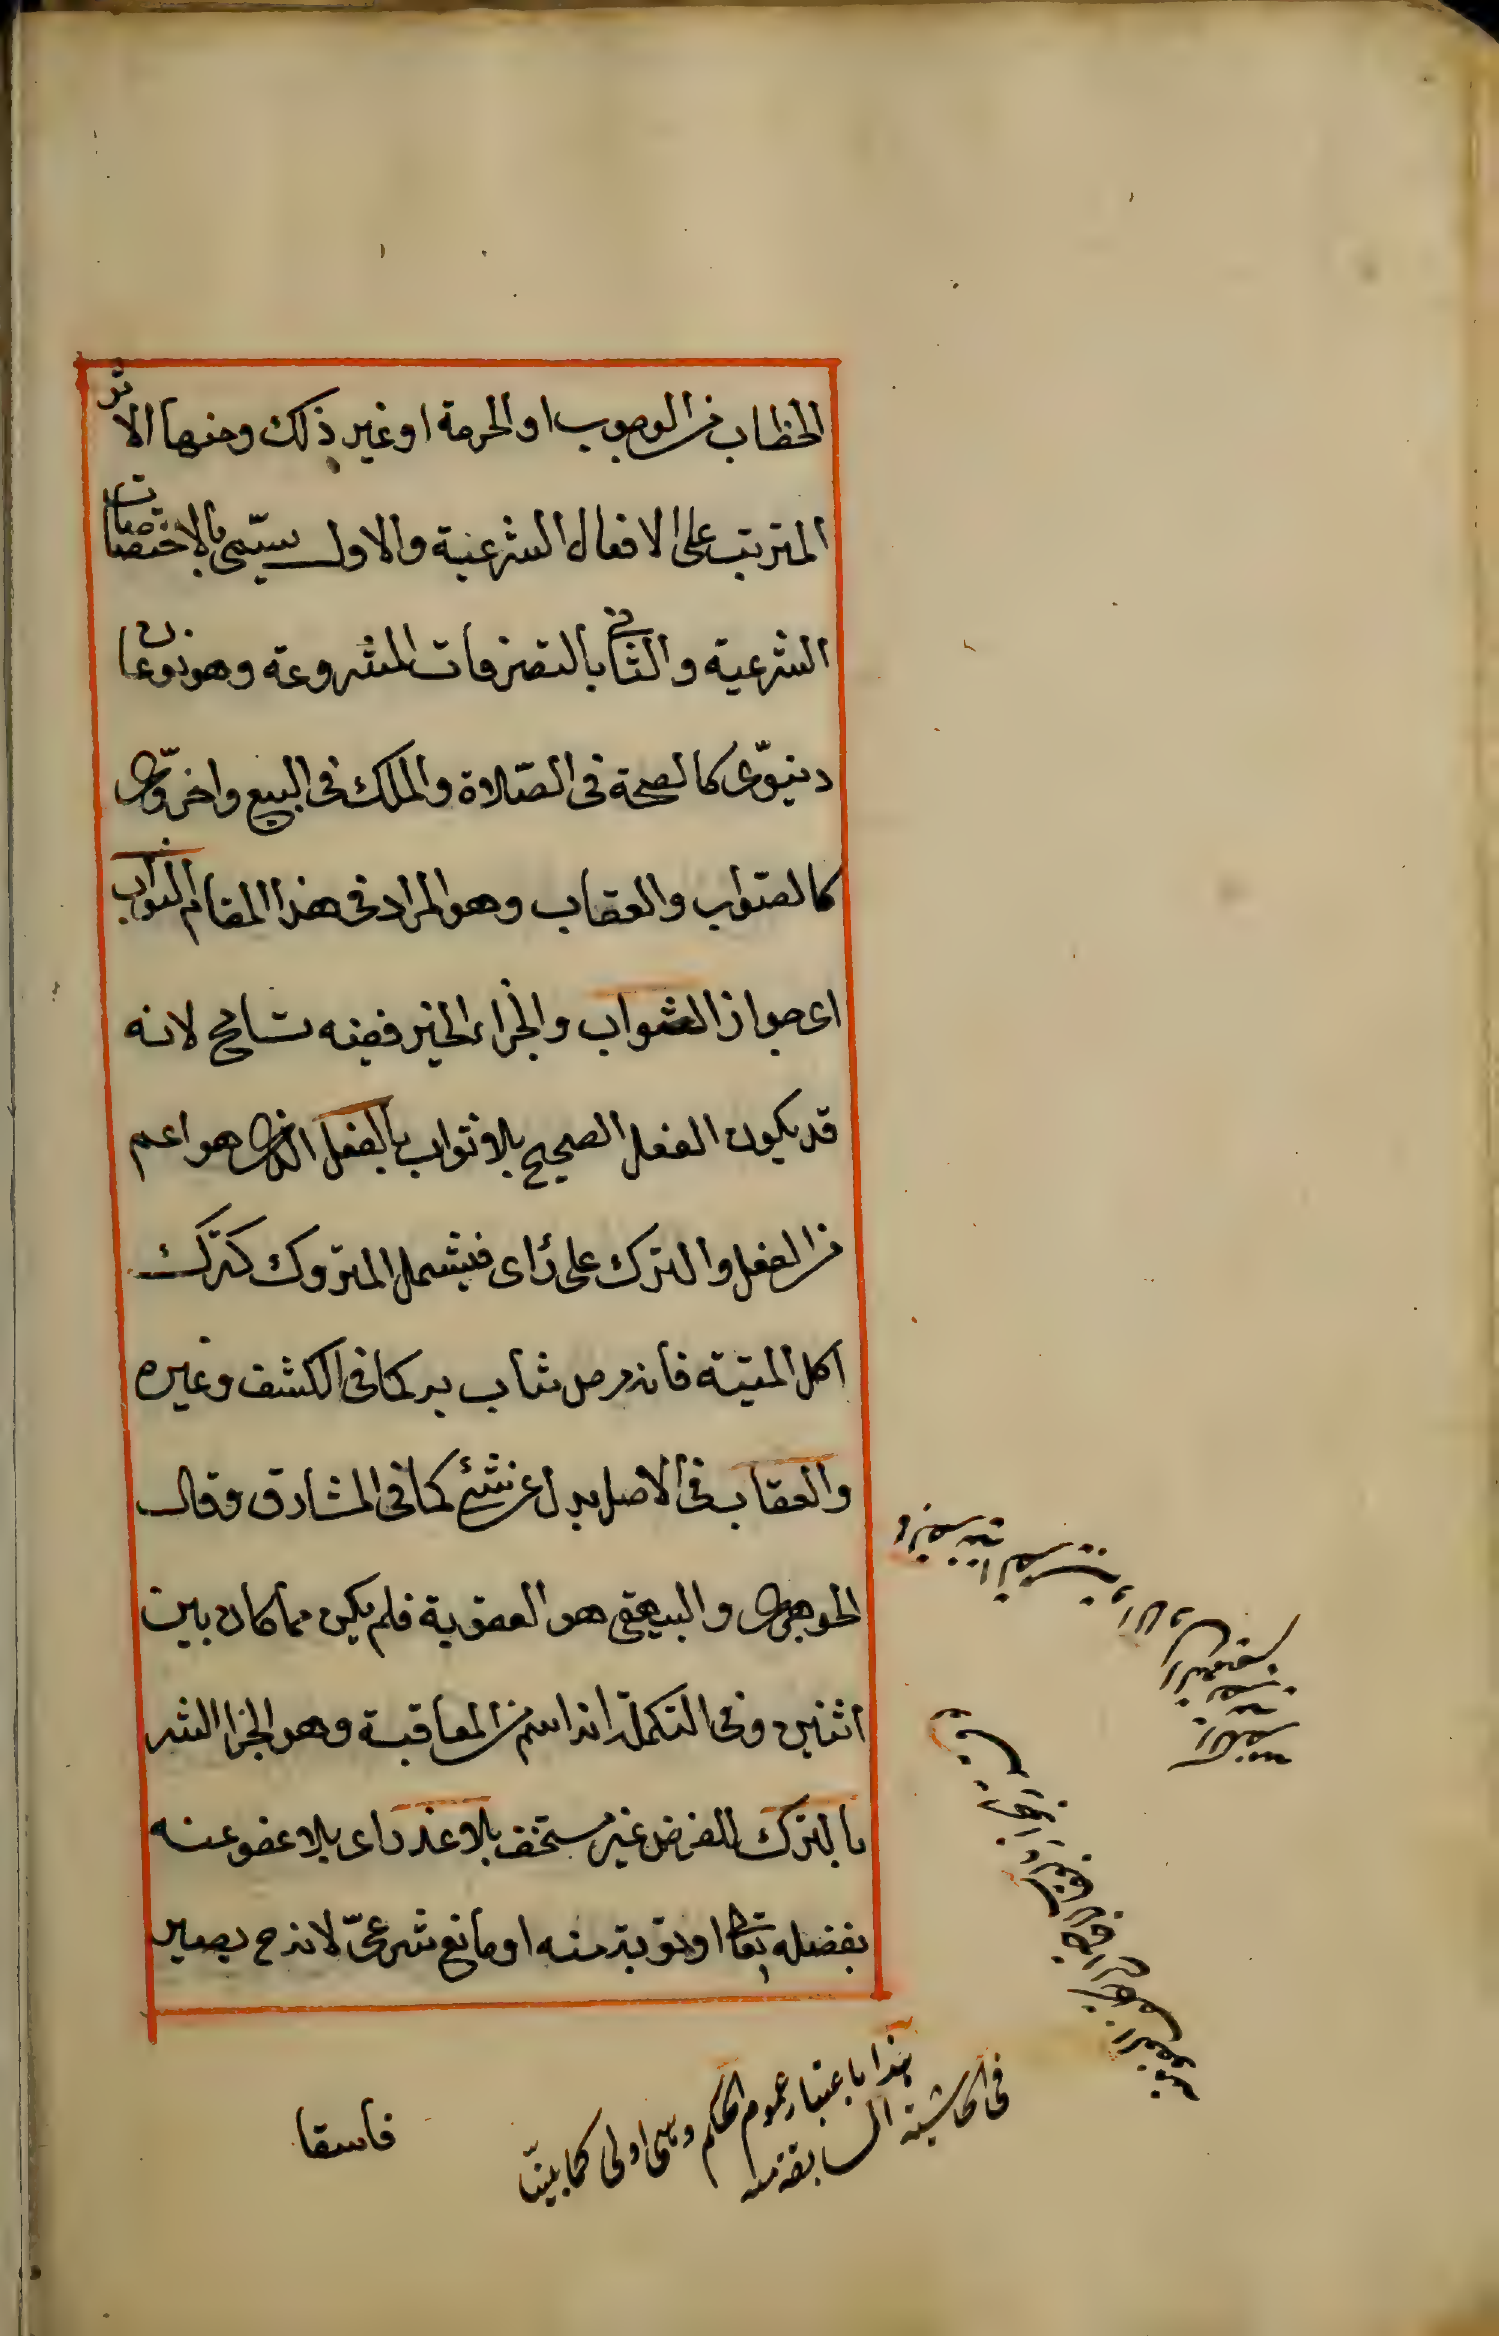 الخطاب من الوجوب او الحرمة او غير ذلك ومنها الاثر
المترتب على الافعال الشرعية والاول يسمى بالاختصاصات
الشرعية والثاني بالتصرفات المشروعة وهو نوعان
دنيوى كالصحة فى الصلاة والملك فى البيع واخروى
كالصواب والعقاب وهو المراد فى هذا المقام الثواب
اى جواز الثواب والجزاء الخير ففيه تسامح لانه
قد يكون الفعل الصحيح بلا ثواب بالفعل الذى هو اعم
من الفعل والترك على راى فيشمل المتروك كترك
اكل الميتة فانه مما يثاب به كما فى الكشف وغيره
والعقاب فى الاصل بدل عن شئ كما فى المشارق وقال
الجوهرى والبيهقى هو العقوبة فلم يكن مما كان بين
اثنين وفى التكملة انه اسم من المعاقبة وهو الجزاء الشر
بالترك للفرض غير مستخف بلا عذر اى بلا عفو عنه
بفضله تعا او توبة منه او مانع شرعى لانه ح يصير
هذا باعتبار عموم الحكم وهى اولى كما بينا
فى الحاشية السابقة منه
فاسقا